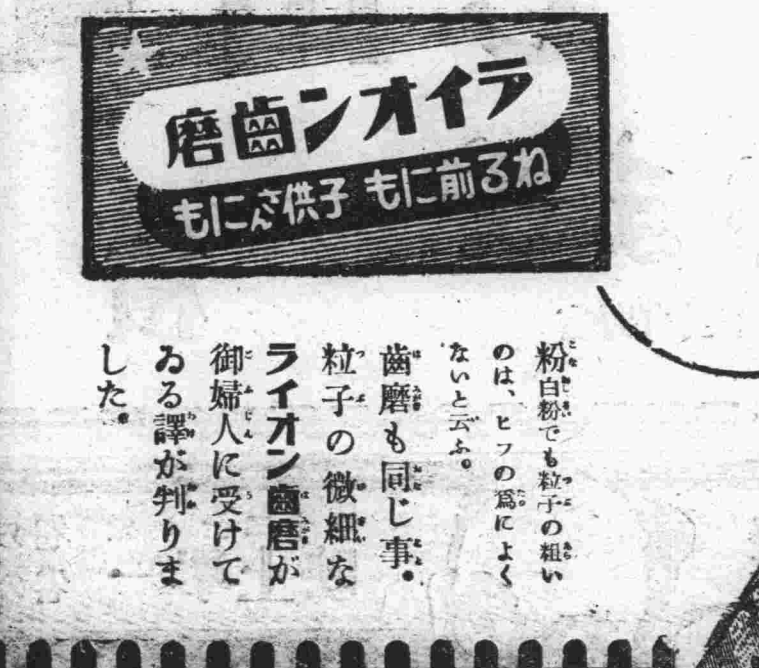 ライオン歯磨
ねる前にも 子供さんにも
粉白粉でも粒子の粗い
のは、ヒフの爲によく
ないと云ふ。
齒磨も同じ事。
粒子の微細な
ライオン歯磨が
御婦人に受けて
ゐる譯が判りま
した。